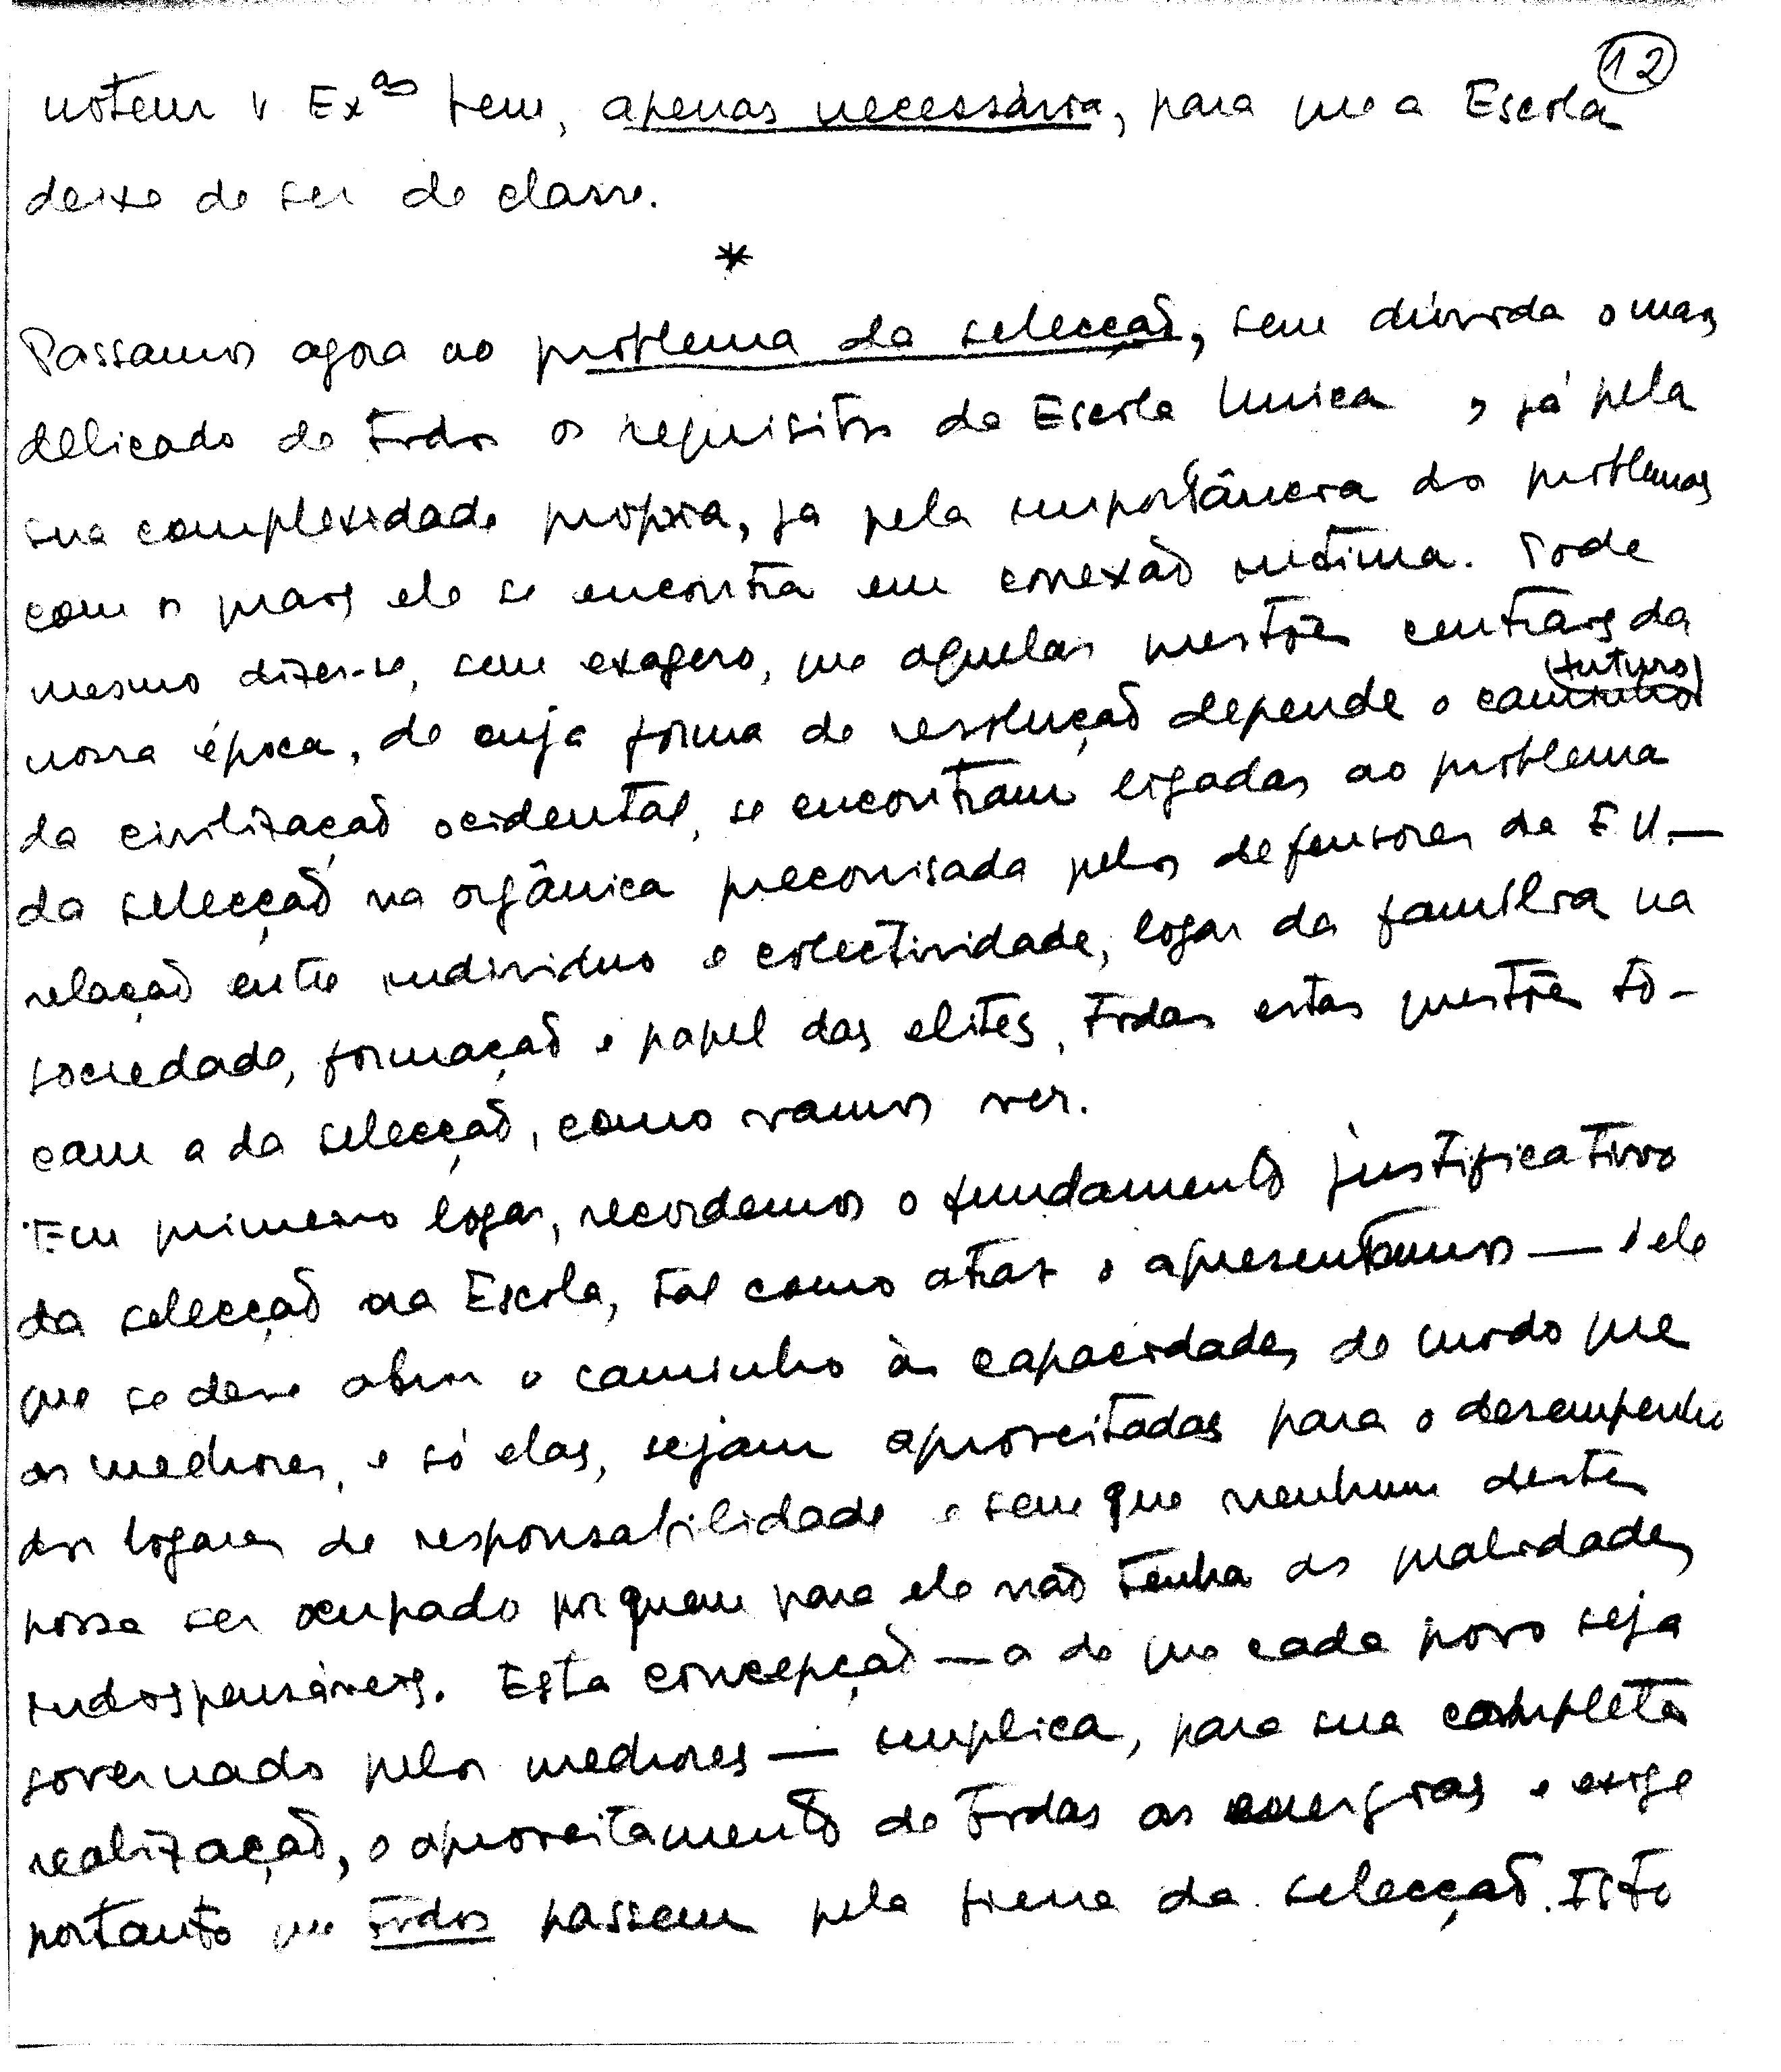 12
notem V Ex.as bem, apenas necessária, para que a Escola
deixe de ser de classe.
*
Passamos agora ao problema da selecção, sem dúvida o mais
delicado de todos os requisitos da Escola Unica, já pela
sua complexidade propria, já pela importância dos problemas
com os quais ele se encontra em conexão intima. Pode
mesmo dizer-se, sem exagero, que aquelas questões centrais da
nossa época, de cuja forma de resolução depende o caminho (futuro)
da civilização ocidental, se encontram ligadas ao problema
da selecção na orgânica preconisada pelos defensores da E U. —
relação entre individuo e colectividade, logar da família na
sociedade, formação e papel das elites, todas estas questões to-
cam a da selecção, como vamos ver.
Em primeiro logar, recordemos o fundamento justificativo
da selecção na Escola, tal como atraz o apresentamos — é ele
que se deve abrir o caminho às capacidades de modo que
as melhores, e só elas, sejam aproveitadas para o desempenho
dos logares de responsabilidade e sem que nenhum destes
possa ser ocupado por quem para ele não tenha as qualidades
indispensáveis. Esta concepção — a de que cada povo seja
governado pelos melhores — implica, para sua completa
realização, o aproveitamento de todas as energias e exige
portanto que todos passem pela fieira da selecção. Isto